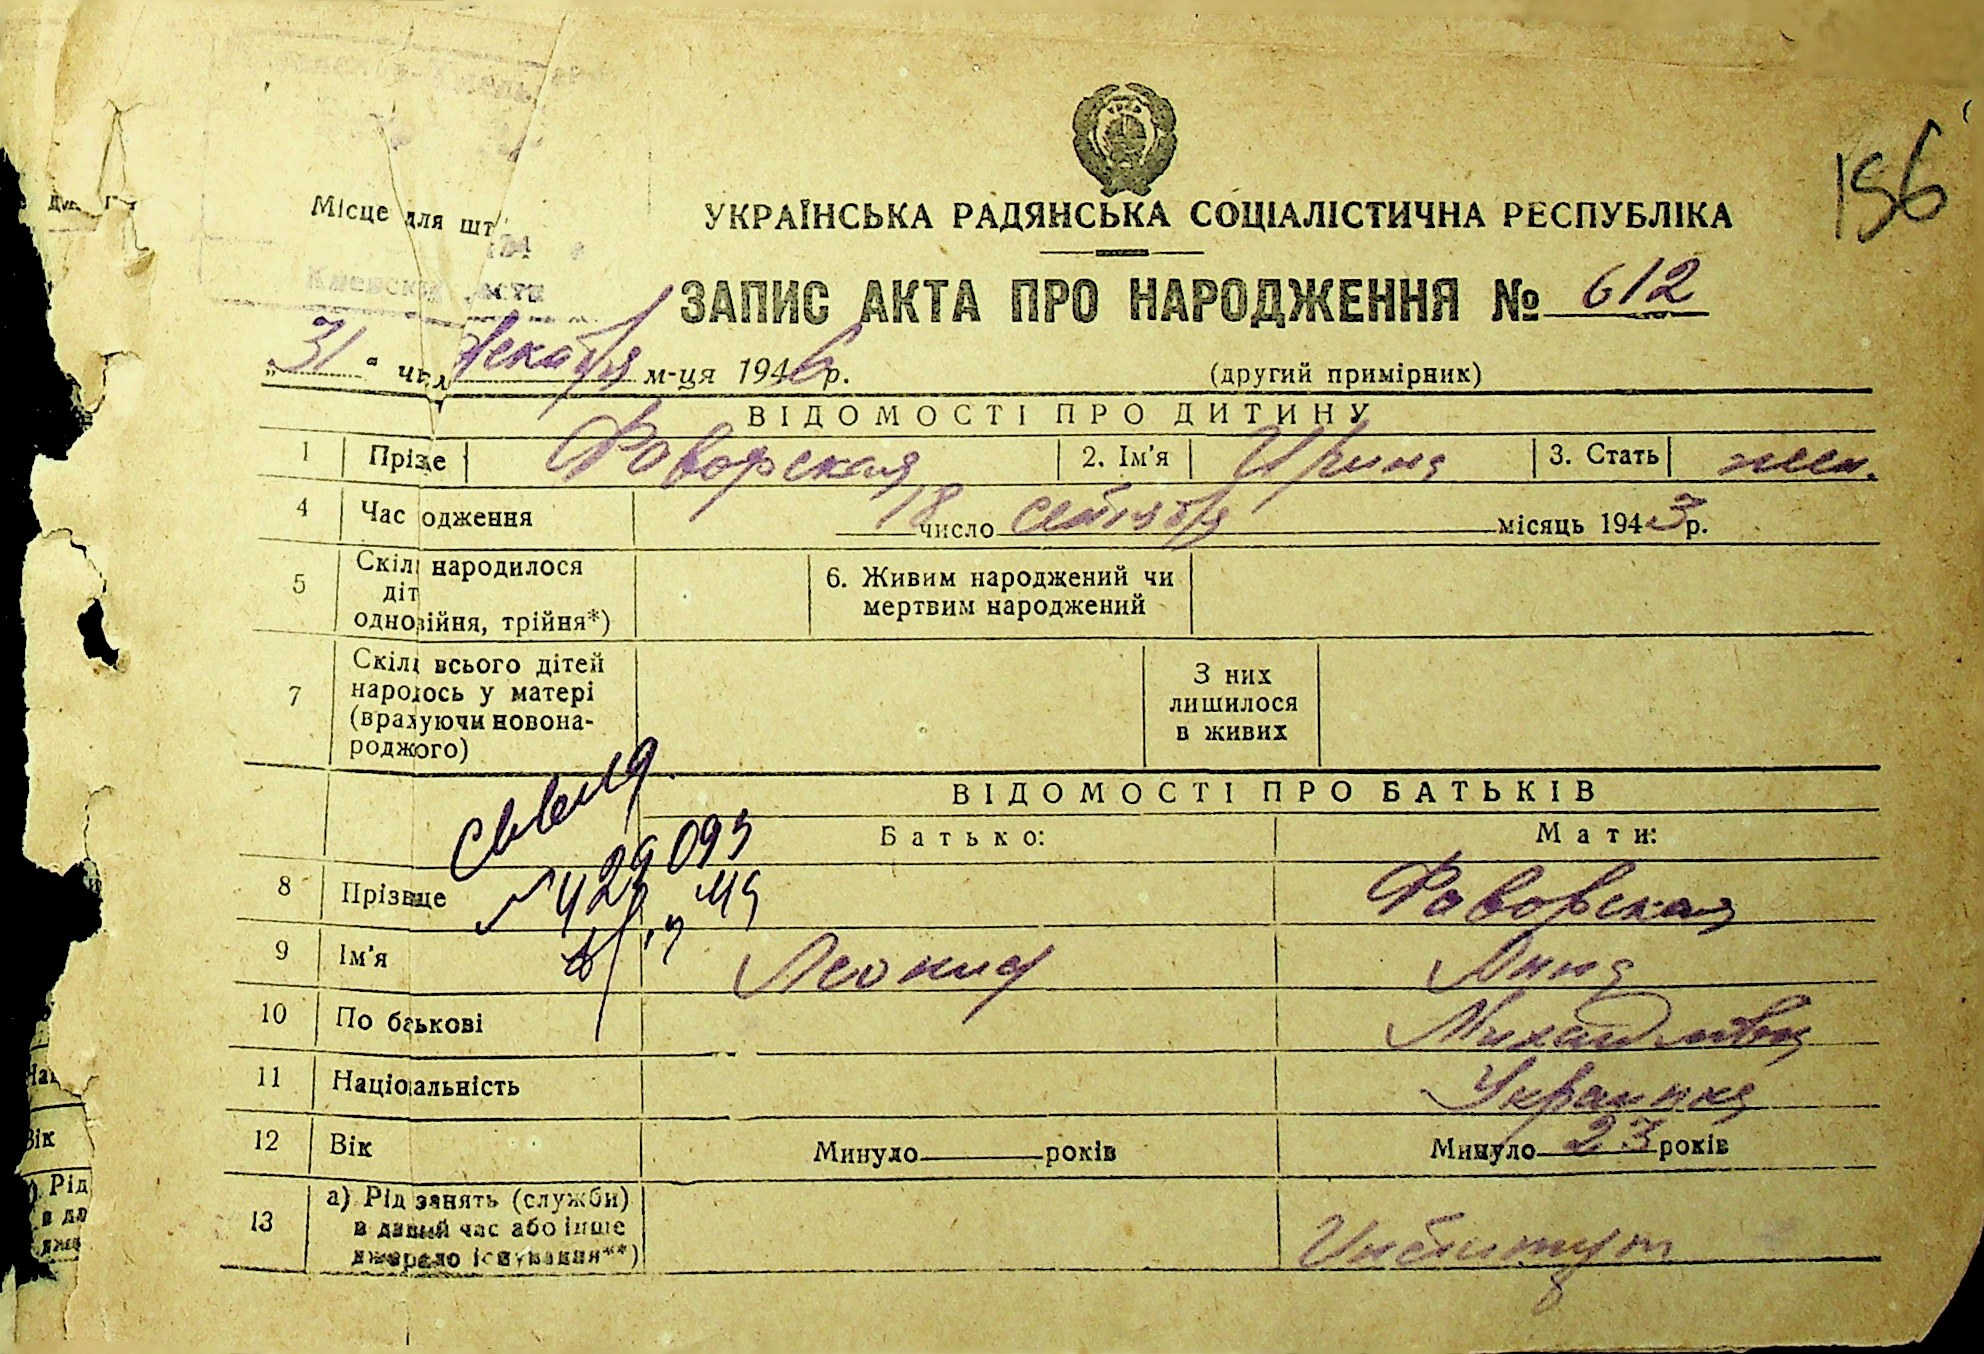 156
Місце для шт
Киевск
УКРАЇНСЬКА РАДЯНСЬКА СОЦІАЛІСТИЧНА РЕСПУБЛІКА
ЗАПИС АКТА ПРО НАРОДЖЕННЯ № 612
„31" декабря м-ця 1946 р. (другий примірник)
ВІДОМОСТІ ПРО ДИТИНУ
1 Фаворская 2. Ім'я Ирина 3. Стать жен.
4 Час одження 18 число сентября місяць 1943 р.
5 Скіл народилося
діт
одно війня, трійня*)
6. Живим народжений чи
мертвим народжений
7 Скіл всього дітей
наро ось у матері
(врахуючи новона-
родж ого)
З них
лишилося
в живих
ВІДОМОСТІ ПРО БАТЬКІВ
Батько: Мати:
8 Прізвще Фаворская
9 Ім'я Леонид Лина
10 По б ькові Михайловна
11 Націо альність Украинка
12 Вік Минуло років Минуло 23 років
13 а) Рід занять (служби)
в даний час або інше
джерело існування**)
Институт
Вік
Рід